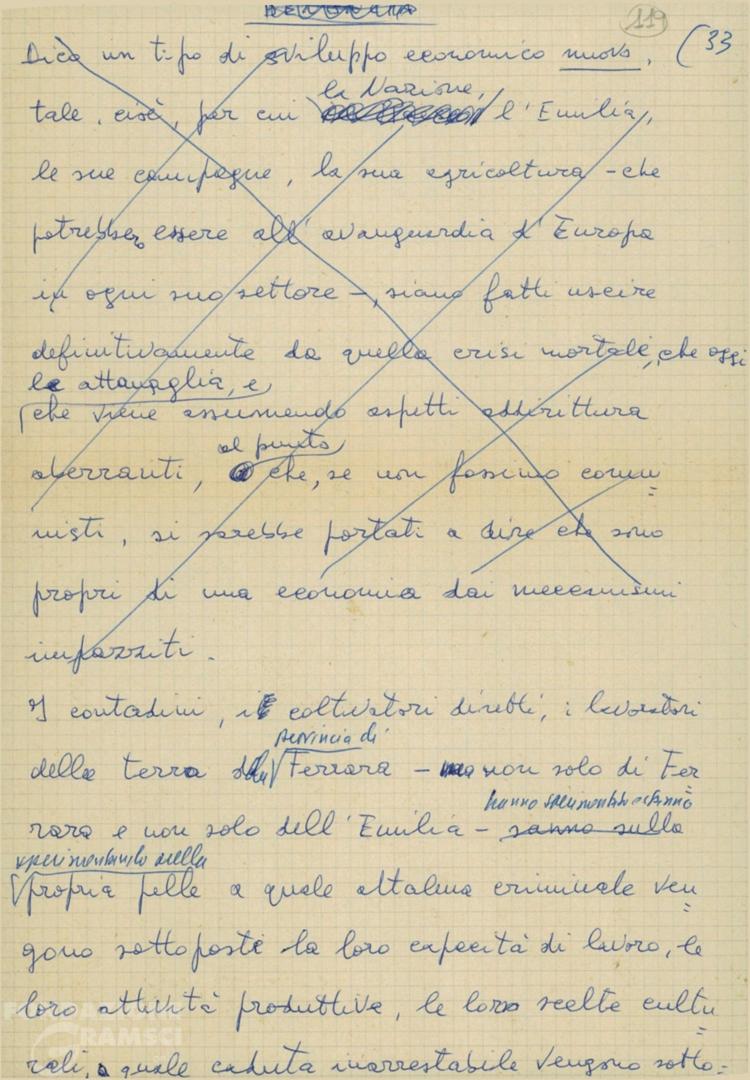 119
(33
Dico un tipo di sviluppo economico nuovo,
la Nazione,
tale, cioè, per cui l'Emilia,
le sue campagne, la sua agricoltura - che
potrebbero essere all'avanguardia d'Europa
in ogni suo settore -, siano fatti uscire
definitivamente da quella crisi mortale, che oggi
le attanaglia, e
che viene assumendo aspetti addirittura
al punto
aberranti, che, se non fossimo comu=
nisti, si sarebbe portati a dire che sono
propri di una economia dai meccanismi
impazziti.
I contadini, i coltivatori diretti, i lavoratori
provincia di
della terra della Ferrara - non solo di Fer=
hanno sperimentato e stanno
rara e non solo dell'Emilia - sanno sulla
sperimentando sulla
propria pelle a quale altalena criminale ven=
gono sottoposte la loro capacità di lavoro, le
loro attività produttive, le loro scelte cultu=
rali, a quale caduta inarrestabile vengono sotto=
FONDAZIONE
GRAMSCI